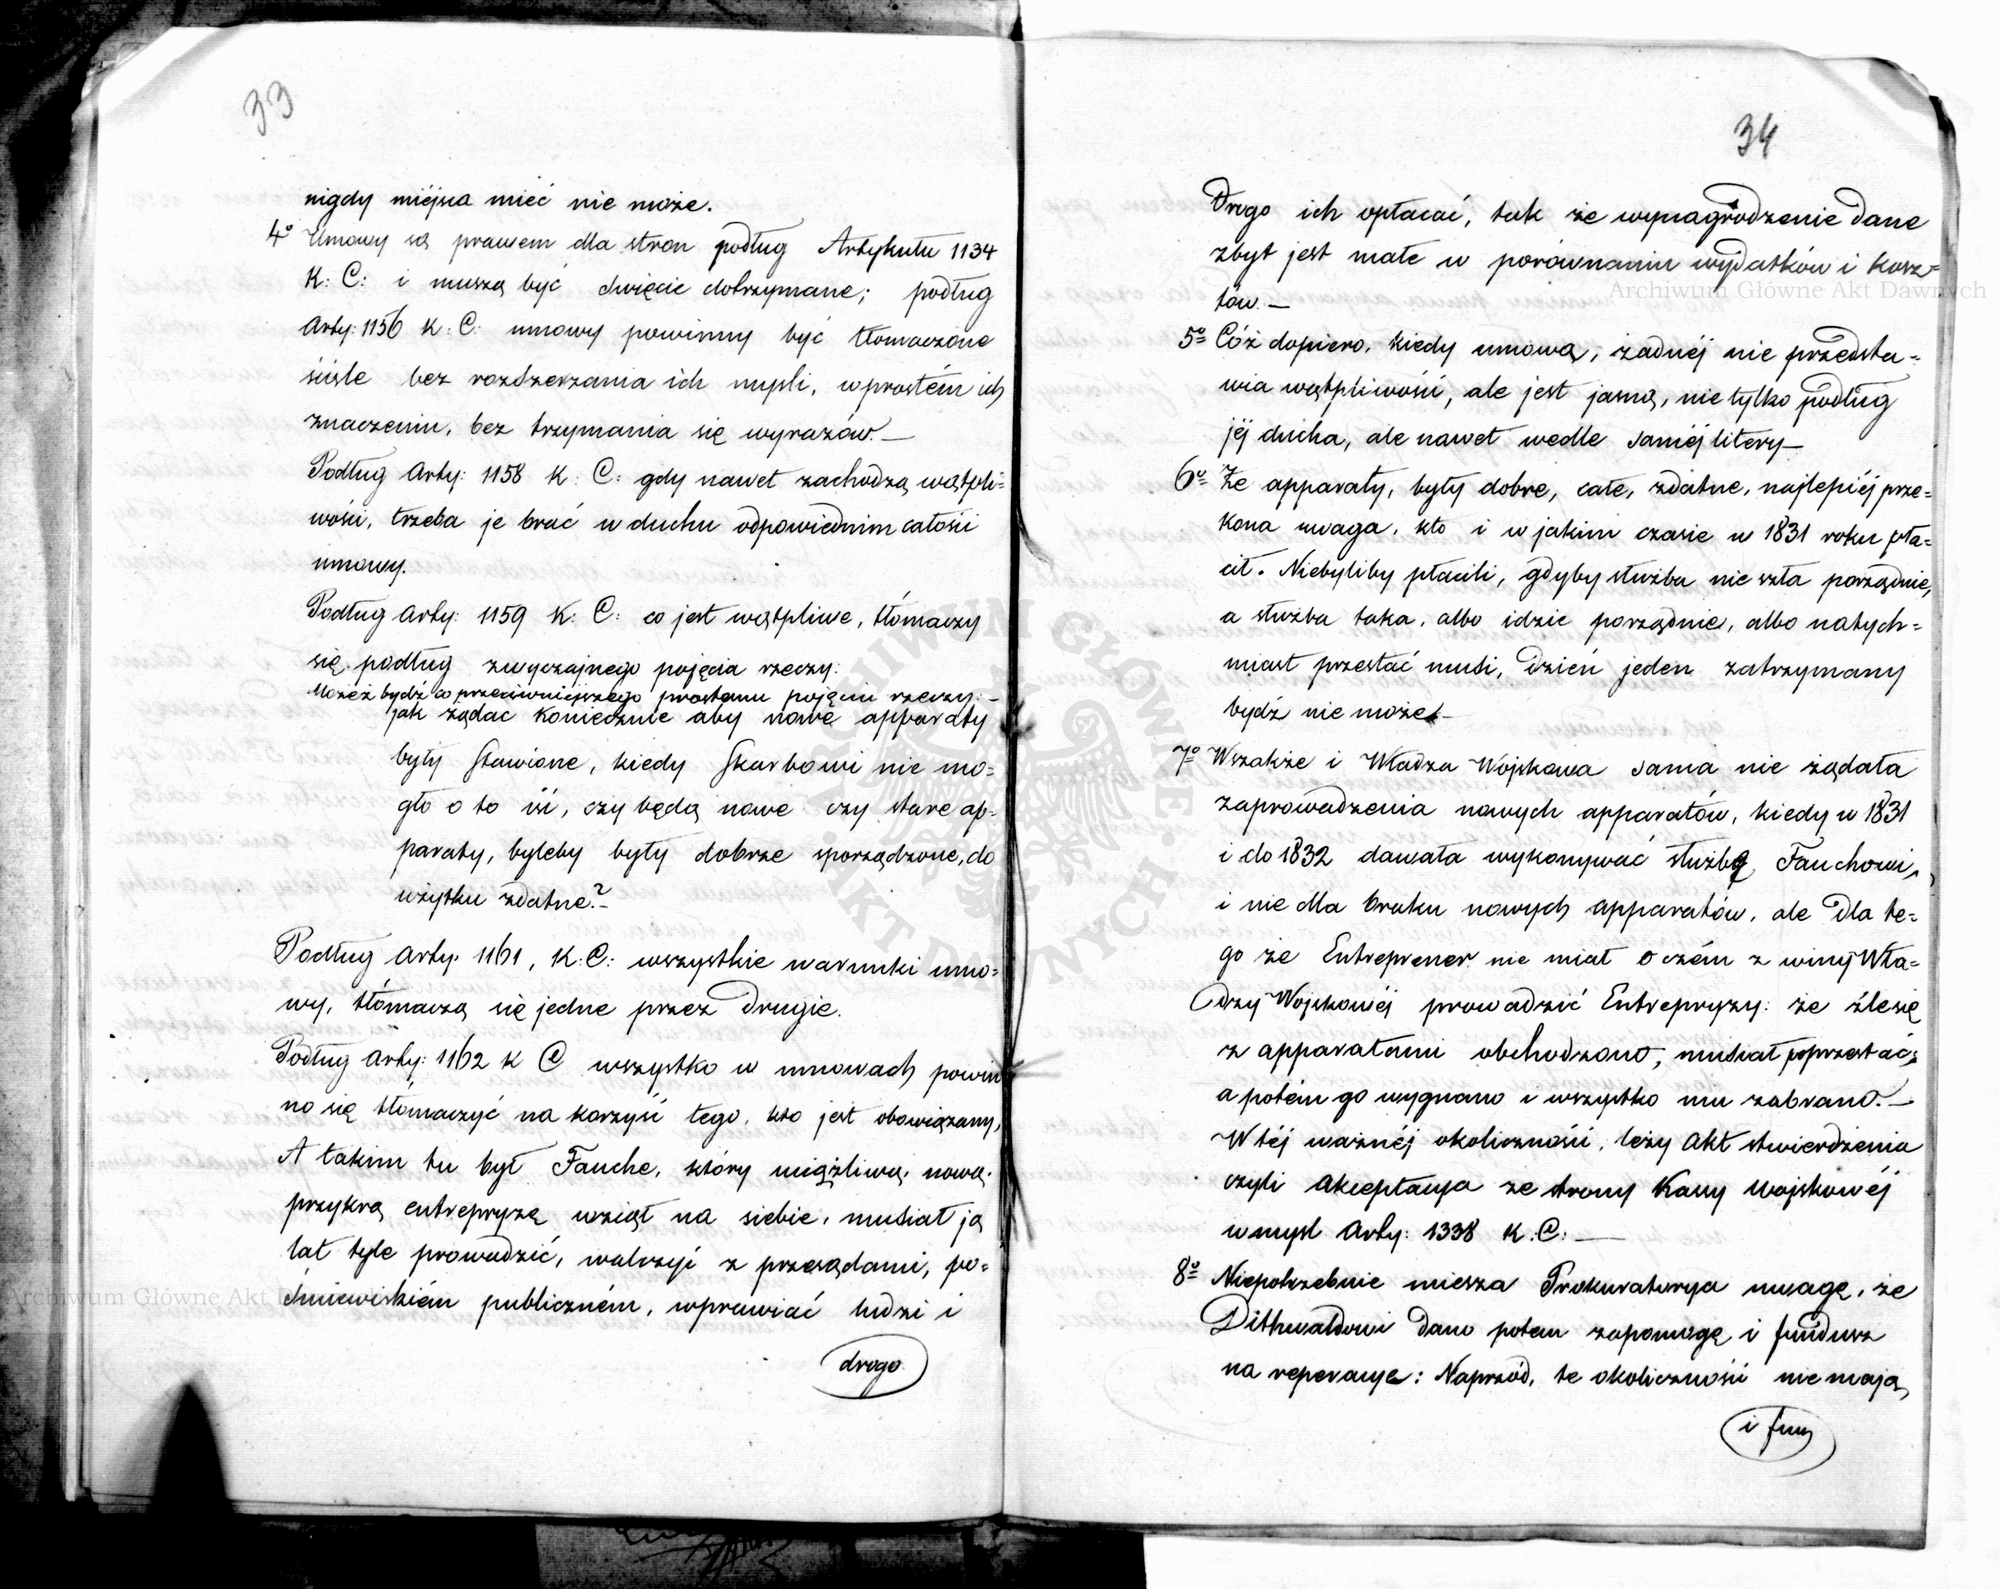 33
nigdy miéjsca mieć nie może.
4º Umowy są prawem dla stron podług Artykułu 1134
K: C: i muszą być święcie dotrzymane; podług
Arty: 1156 K: C: umowy powinny być tłomaczone
ściśle bez rozszerzania ich myśli, w prostém ich
znaczeniu, bez trzymania się wyrazów.—
Podług Arty: 1158 K: C: gdy nawet zachodzą wątpli=
wości, trzeba je brać w duchu odpowiednim całości
umowy.
Podług Arty: 1159 K: C: co jest wątpliwe, tłómaczy
się podług zwyczajnego pojęcia rzeczy:
Możeż bydź co przeciwniejszego prostemu pojęciu rzeczy:—
jak żądać koniecznie aby nowe apparaty
były stawione, kiedy Skarbowi nie mo=
gło o to iść, czy będą nowe czy stare ap=
paraty, byleby były dobrze sporządzone, do
użytku zdatne?—
Podług Arty. 1161, K: C: wszystkie warunki umo=
wy, tłómaczą się jedne przez drugie.
Podług Arty: 1162 K C wszystko w umowach powin
no się tłómaczyć na korzyść tego, kto jest obowiązany,
A takim tu był Fauche, który uciążliwą, nową,
przykrą entrepryzę wziął na siebie, musiał ją
lat tyle prowadzić, walczyć z przesądami, po=
śmiewiskiém publiczném, wprawiać ludzi i
drogo
34
Drogo ich opłacać, tak że wynagrodzenie dane
zbyt jest małe w porównaniu wydatków i kosz=
tów.—
5º Cóż dopiero, kiedy umową, żadnéj nie przedsta=
wia wątpliwości, ale jest jasną, nie tylko podług
jéj ducha, ale nawet wedle saméj litery—
6º Że apparaty, były dobre, całe, zdatne, najlepiéj prze=
kona uwaga, kto i w jakim czasie w 1831 roku pła=
cił. Niebyliby płacili, gdyby służba nie szła porządnie,
a służba taka, albo idzie porządnie, albo natych=
miast przestać musi, Dzień jeden zatrzymany
bydź nie może.—
7º Wszakże i Władza Wojskowa sama nie żądała
zaprowadzenia nowych apparatów, kiedy w 1831
i do 1832 dawała wykonywać służbę Fauchowi,
i nie dla braku nowych apparatów, ale dla te=
go że Entreprener nie miał o czém z winy Wła=
dzy Wojskowéj prowadzić Entrepryzy: że źle się
z apparatami obchodzono, musiał poprzestać,
a potém go wygnano i wszystko mu zabrano.—
W téj ważnéj okoliczności, leży Akt stwierdzenia
czyli Akceptacya ze strony Kassy Wojskowéj
w myśl Arty: 1338 K. C.—
8º Niepotrzebnie miesza Prokuratorya uwagę, że
Dithwaldowi dano potem zapomogę i fundusz
na reperacye: Naprzód, te okoliczności nie mają
i fun
ARCHIWUM GŁÓWNE AKT DAWNYCH
Archiwum Główne Akt Dawnych
Archiwum Główne Akt